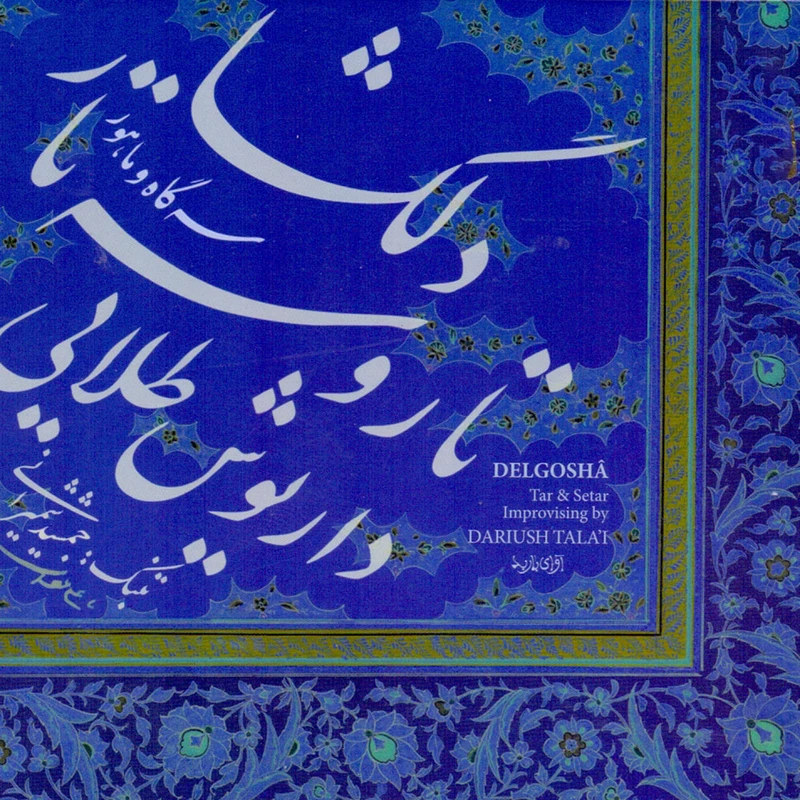 دلگشا
سه‌گاه و ماهور
تار و سه‌تار
داریوش طلایی
تمبک: جمشید شمیرانی
DELGOSHÂ
Tar & Setar
Improvising by
DARIUSH TALA'I
آوای باربد